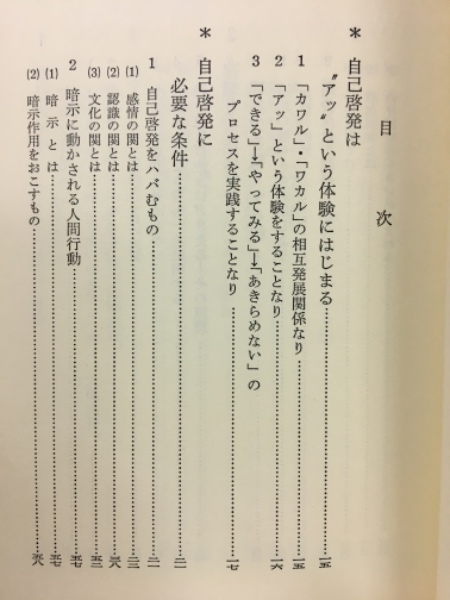 目次
＊ 自己啓発は
〝アッ〟という体験にはじまる……一五
1 「カワル」・「ワカル」の相互発展関係なり……一五
2 「アッ」という体験をすることなり……一六
3 「できる」→「やってみる」→「あきらめない」の
プロセスを実践することなり……一七
＊ 自己啓発に
必要な条件……二一
1 自己啓発をハバむもの……二一
(1) 感情の関とは……
(2) 認識の関とは……
(3) 文化の関とは……
2 暗示に動かされる人間行動……五七
(1) 暗示とは……五七
(2) 暗示作用をおこすもの……五八